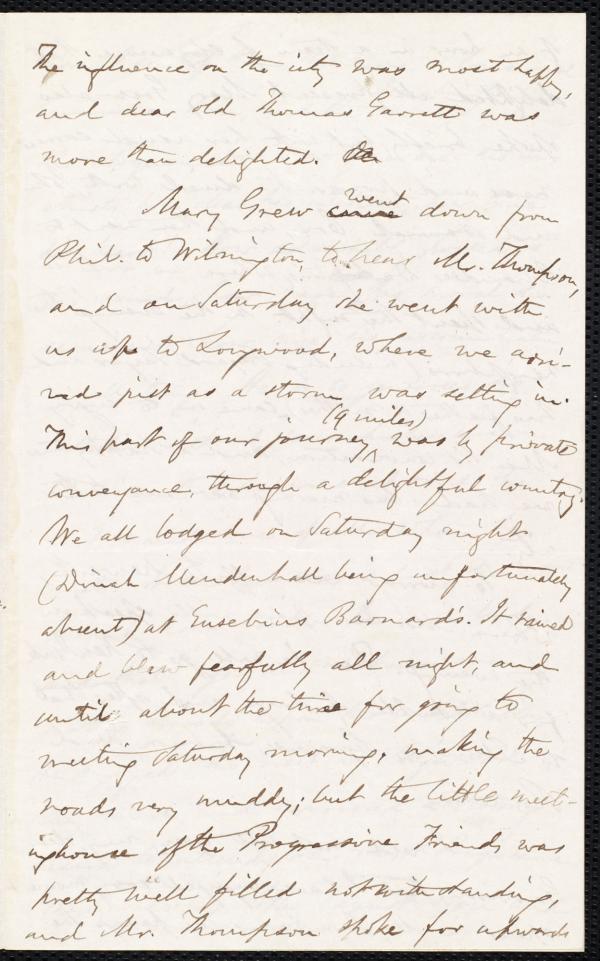 The influence on the city was most happy,
and dear old Thomas Garrett was
more than delighted.
Mary Grew came went down from
Phil. to Wilmington, to hear Mr. Thompson,
and on Saturday she went with
us up to Longwood, where we arri-
ved just as a storm was setting in.
This part of our journey (9 miles) was by private
conveyance, through a delightful country.
We all lodged on Saturday night
(Dinah Mendenhall being unfortunately
absent) at Eusebius Barnard's. It rained
and blew fearfully all night, and
until about the time for going to
meeting Saturday morning, making the
roads very muddy; but the little meet-
inghouse of the Progressive Friends was
pretty well filled notwithstanding,
and Mr. Thompson spoke for upwards